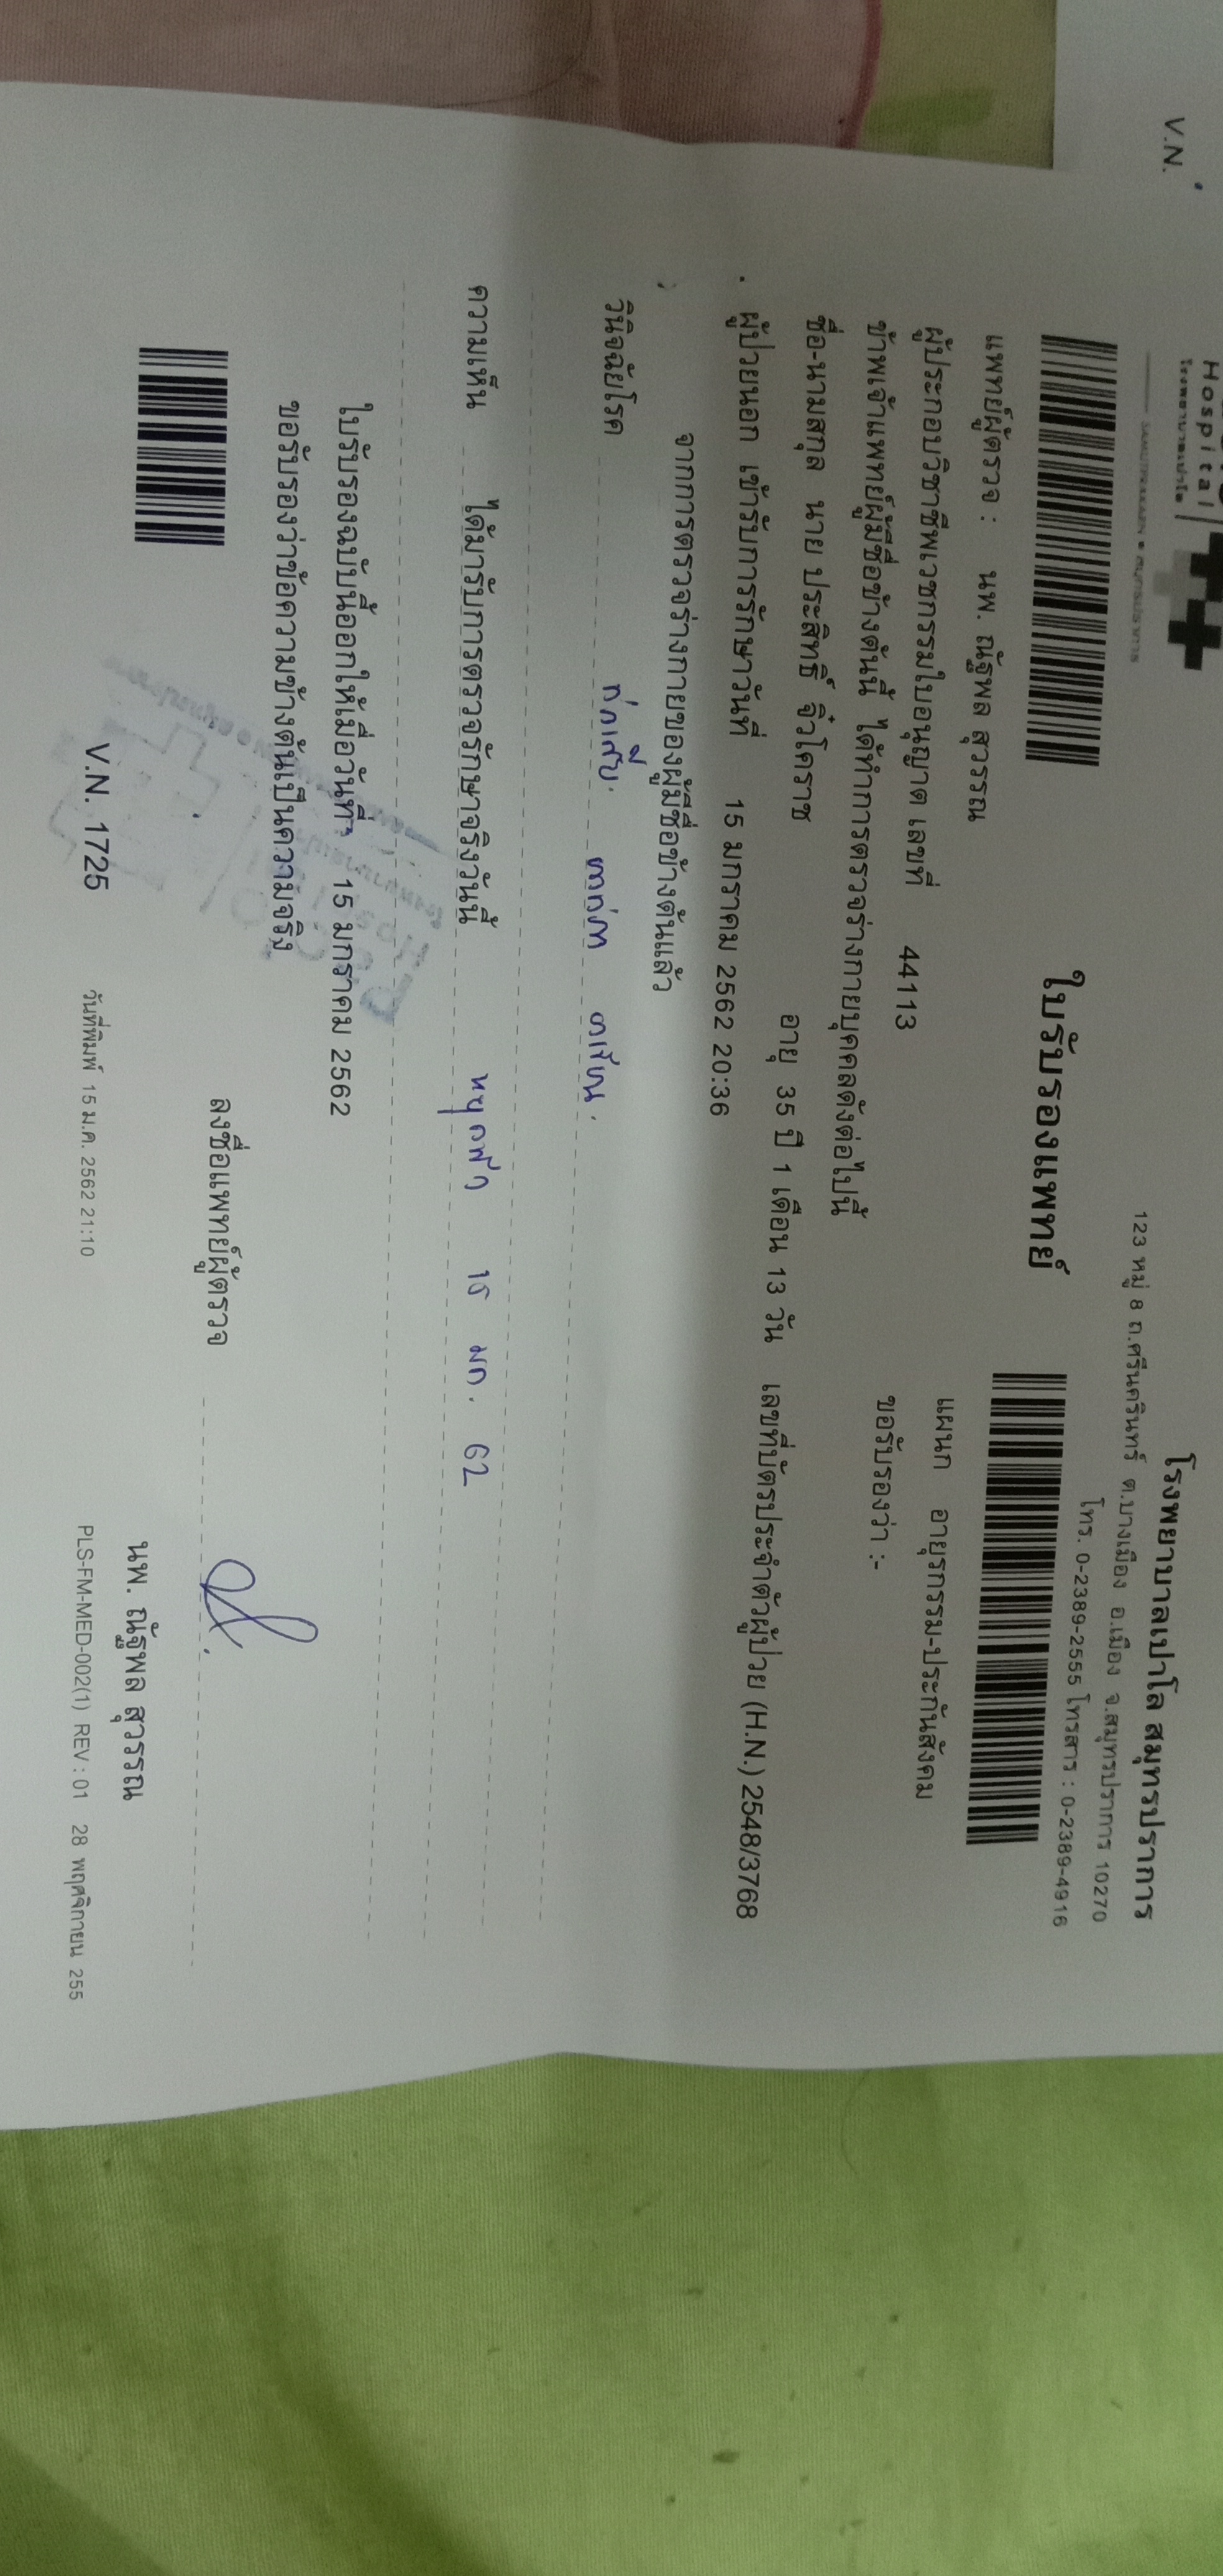 Hospital
โรงพยาบาลเปาโล
SAMUTPRAKARN • สมุทรปราการ
V.N.
โรงพยาบาลเปาโล สมุทรปราการ
123 หมู่ 8 ถ.ศรีนครินทร์ ต.บางเมือง อ.เมือง จ.สมุทรปราการ 10270
โทร. 0-2389-2555 โทรสาร : 0-2389-4916
ใบรับรองแพทย์
แพทย์ผู้ตรวจ : นพ. ณัฐพล สุวรรณ
ผู้ประกอบวิชาชีพเวชกรรมใบอนุญาต เลขที่ 44113 แผนก อายุรกรรม-ประกันสังคม
ข้าพเจ้าแพทย์ผู้มีชื่อข้างต้นนี้ ได้ทำการตรวจร่างกายบุคคลดังต่อไปนี้ ขอรับรองว่า :-
ชื่อ-นามสกุล นาย ประสิทธิ์ จิ๋วโคราช อายุ 35 ปี 1 เดือน 13 วัน เลขที่บัตรประจำตัวผู้ป่วย (H.N.) 2548/3768
ผู้ป่วยนอก เข้ารับการรักษาวันที่ 15 มกราคม 2562 20:36
จากการตรวจร่างกายของผู้มีชื่อข้างต้นแล้ว
วินิจฉัยโรค ท้องเสีย
ความเห็น ได้มารับการตรวจรักษาจริงวันนี้ 15 มก. 62
ใบรับรองฉบับนี้ออกให้เมื่อวันที่ 15 มกราคม 2562
ขอรับรองว่าข้อความข้างต้นเป็นความจริง
ลงชื่อแพทย์ผู้ตรวจ
นพ. ณัฐพล สุวรรณ
V.N. 1725 วันที่พิมพ์ 15 ม.ค. 2562 21:10 PLS-FM-MED-002(1) REV : 01 28 พฤศจิกายน 255